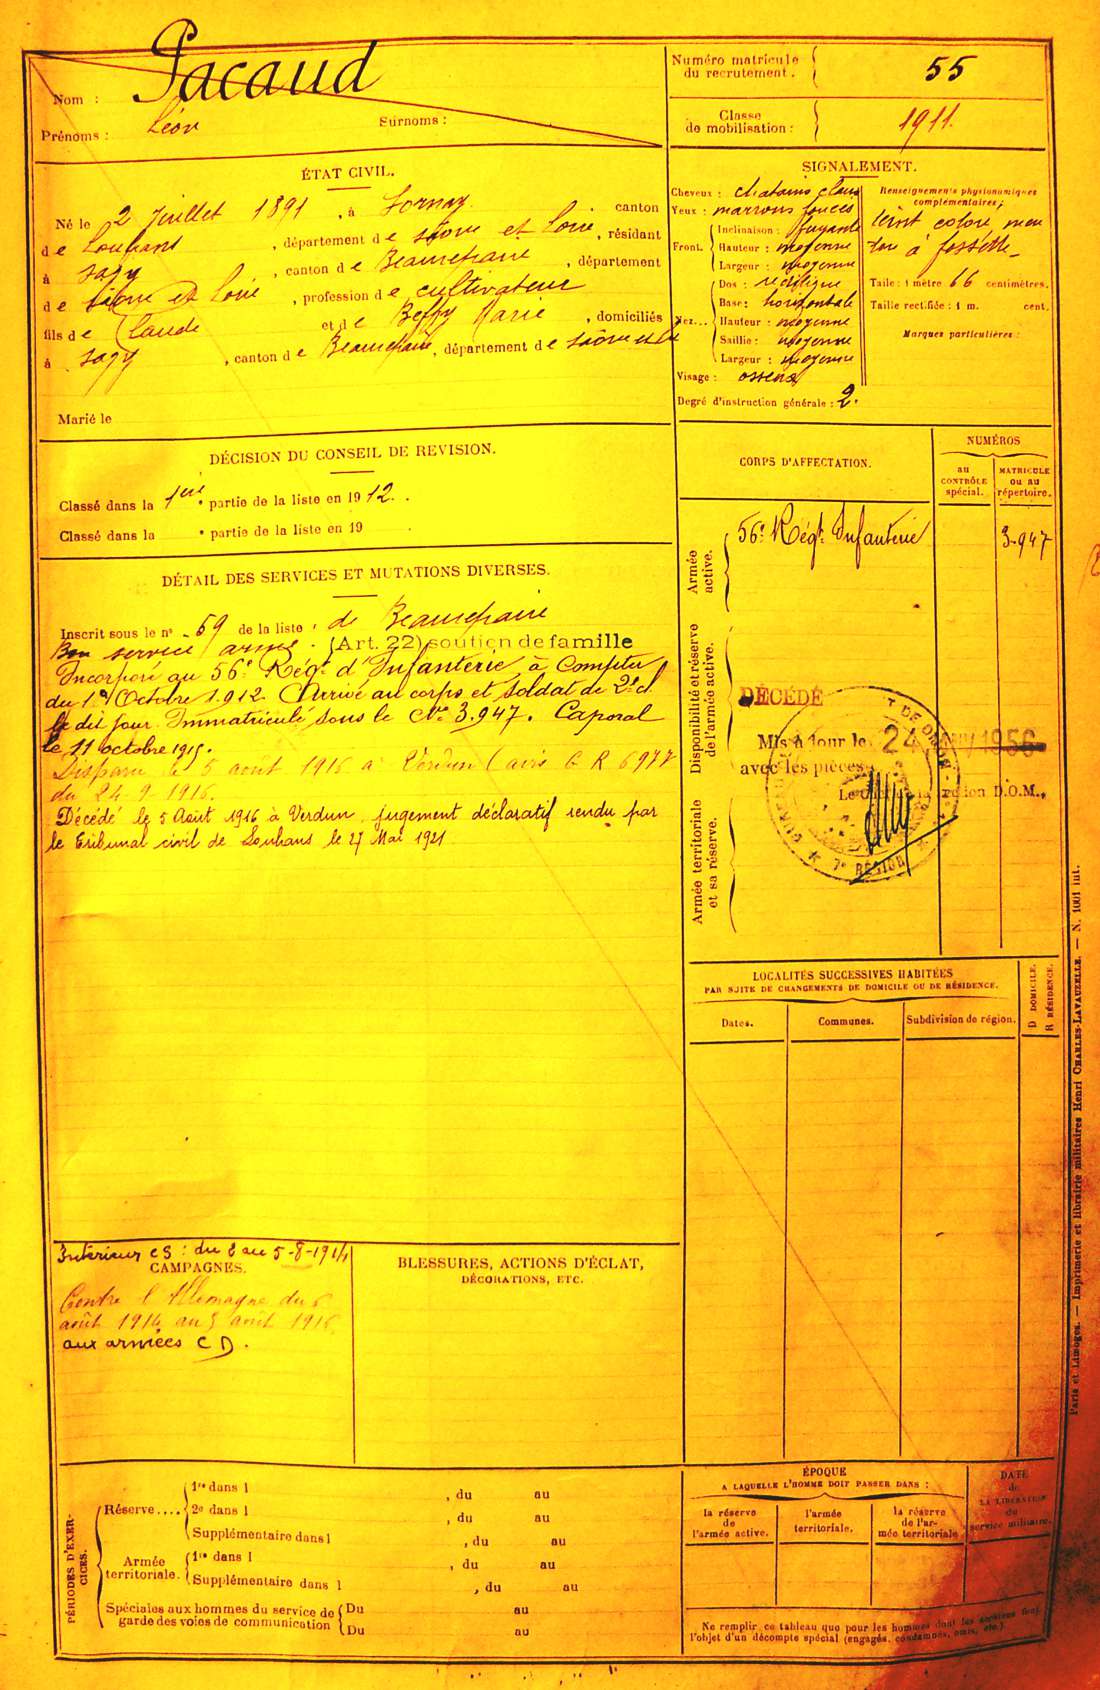 Nom : Pacaud
Prénoms : Léon Surnoms :
Numéro matricule du recrutement. 55
Classe de mobilisation : 1911.
ÉTAT CIVIL.
Né le 2 Juillet 1891, à Sornay canton
de Louhans, département de Saône et Loire, résidant
à Sagy, canton de Beaurepaire, département
de Saône et Loire, profession de cultivateur
fils de Claude et de Beffy Marie, domiciliés
à Sagy, canton de Beaurepaire, département de Saône et L
Marié le
SIGNALEMENT.
Cheveux : chatains clairs
Yeux : marrons foncés
Front. Inclinaison : fuyante
Hauteur : moyenne
Largeur : moyenne
Nez... Dos : rectiligne
Base : horizontale
Hauteur : moyenne
Saillie : moyenne
Largeur : moyenne
Visage : osseux
Degré d'instruction générale : 2.
Renseignements physionomiques
complémentaires :
teint coloré, men
ton à fossette
Taille : 1 mètre 66 centimètres.
Taille rectifiée : 1 m. cent.
Marques particulières :
DÉCISION DU CONSEIL DE REVISION.
Classé dans la 1ère partie de la liste en 1912.
Classé dans la partie de la liste en 19
DÉTAIL DES SERVICES ET MUTATIONS DIVERSES.
Inscrit sous le n° 59 de la liste de Beaurepaire
Bon service armé. (Art. 22) soutien de famille
Incorporé au 56e Régt d'Infanterie à compter
du 1er Octobre 1912. Arrivé au corps et soldat de 2e cl.
le dit jour. Immatriculé sous le No 3.947. Caporal
le 11 octobre 1915.
Disparu le 5 août 1916 à Verdun (avis C R 6977
du 24-9-1916.
Décédé le 5 Août 1916 à Verdun, jugement déclaratif rendu par
le Tribunal civil de Louhans le 27 Mai 1921
CORPS D'AFFECTATION.
NUMÉROS
au CONTRÔLE spécial.
MATRICULE ou au répertoire.
Armée active.
56e Régt Infanterie 3.947
Disponibilité et réserve de l'armée active.
DÉCÉDÉ
Mis à jour le 24 1956
avec les pièces
D.O.M.,
7e RÉGION
Armée territoriale et sa réserve.
LOCALITÉS SUCCESSIVES HABITÉES
PAR SUITE DE CHANGEMENTS DE DOMICILE OU DE RÉSIDENCE.
Dates. Communes. Subdivision de région.
D DOMICILE.
R RÉSIDENCE.
Intérieur CS : du 2 au 5-8-1914
CAMPAGNES.
Contre l'Allemagne du 6
août 1914 au 5 août 1916.
aux armées C D.
BLESSURES, ACTIONS D'ÉCLAT,
DÉCORATIONS, ETC.
PÉRIODES D'EXERCICES.
Réserve.... 1re dans l , du au
2e dans l , du au
Supplémentaire dans l , du au
Armée territoriale. 1re dans l , du au
Supplémentaire dans l , du au
Spéciales aux hommes du service de garde des voies de communication Du au
Du au
ÉPOQUE
A LAQUELLE L'HOMME DOIT PASSER DANS :
la réserve de l'armée active.
l'armée territoriale.
la réserve de l'armée territoriale
DATE de LA LIBÉRATION du service militaire.
Ne remplir ce tableau que pour les hommes dont les services font
l'objet d'un décompte spécial (engagés, condamnés, omis, etc.)
Paris et Limoges. — Imprimerie et librairie militaires Henri CHARLES-LAVAUZELLE. — N. 1001 int.